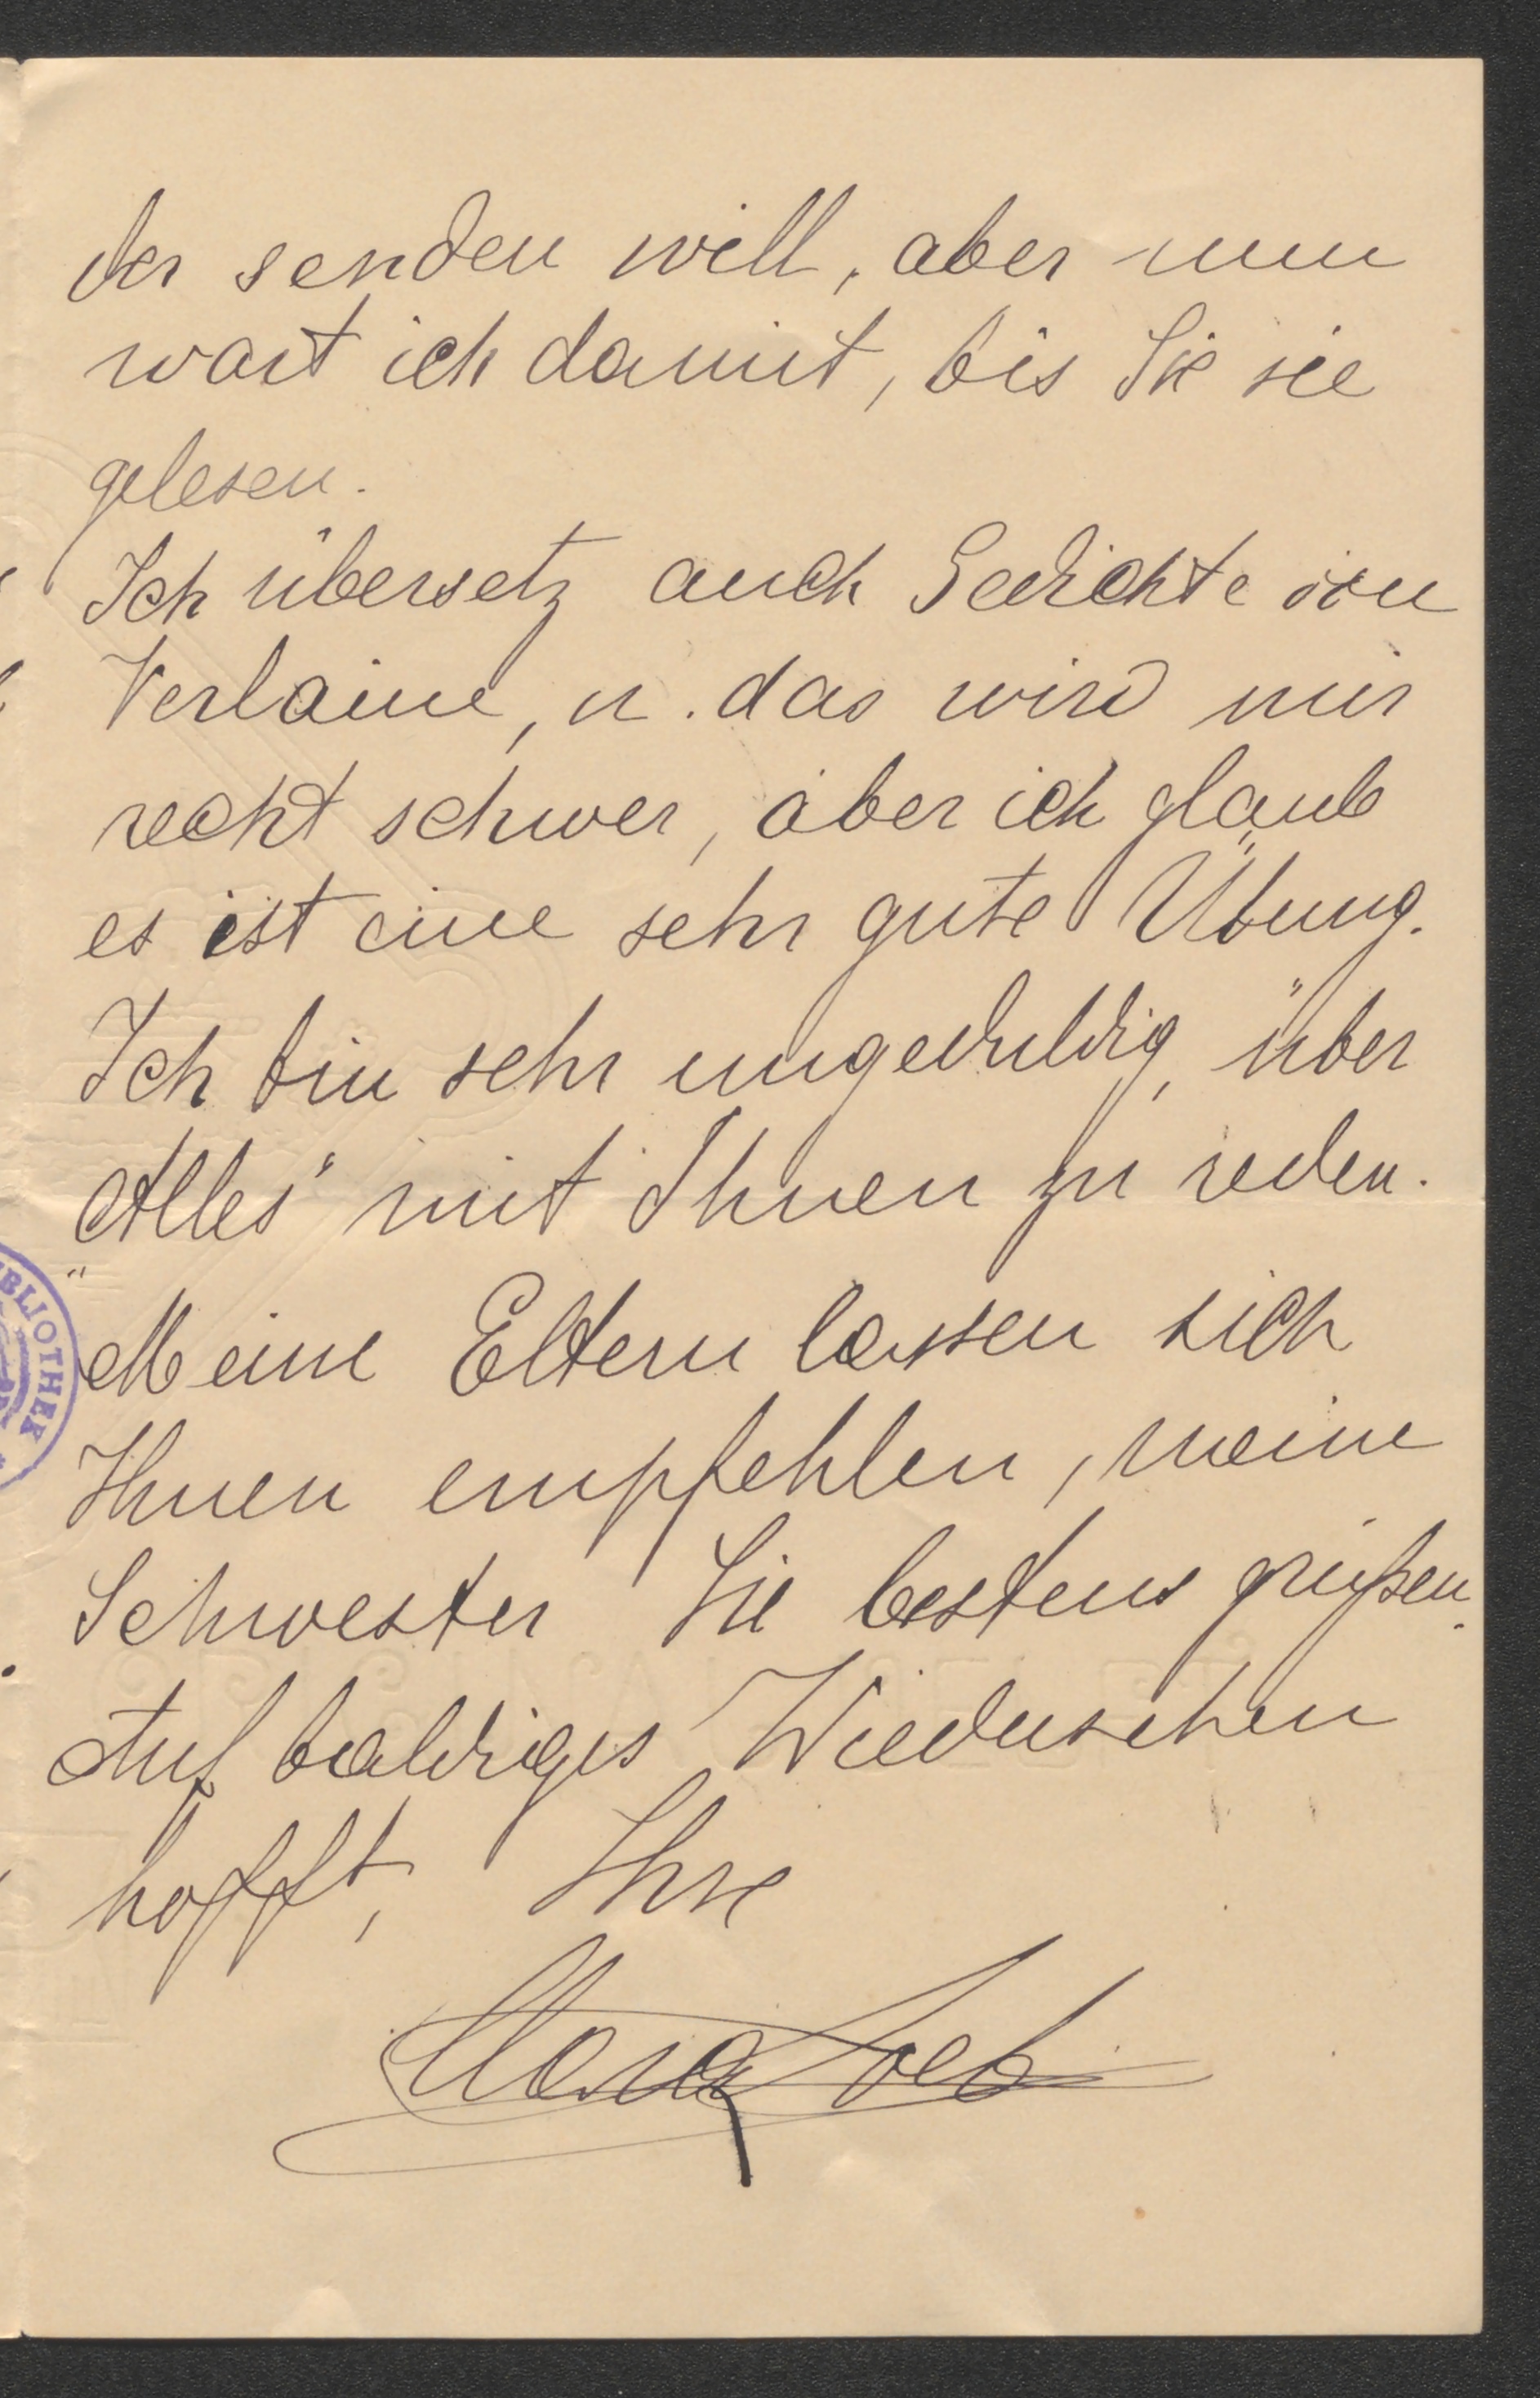 der senden will, aber nun
wart ich damit, bis Sie sie
gelesen.
Ich übersetz auch Gedichte von
Verlaine, u. das wird mir
recht schwer, aber ich glaub
es ist eine sehr gute Übung.
Ich bin sehr ungeduldig, über
„Alles“ mit Ihnen zu reden.
Meine Eltern lassen sich
Ihnen empfehlen, meine
Schwester Sie bestens grüßen.
Auf baldiges Wiedersehen
hofft, Ihre
BLIOTHEK